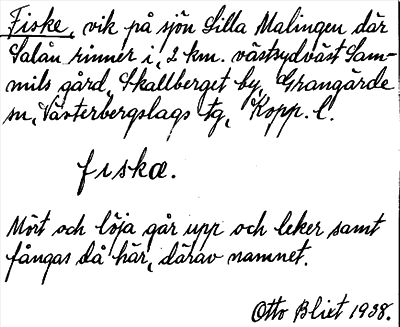 Fiske, vik på sjön Lilla Malingen där
Salån rinner i, 2 km. västsydväst Sam-
mils gård, Skallberget by, Grangärde
sn, Västerbergslags tg, Kopp. l.
fiskæ.
Mört och löja går upp och leker samt
fångas då här, därav namnet.
Otto Blixt 1938.